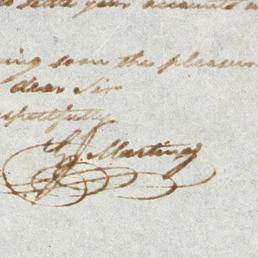 to settle your accounts
ing soon the pleasure
dear Sir
spectfully
Martinez